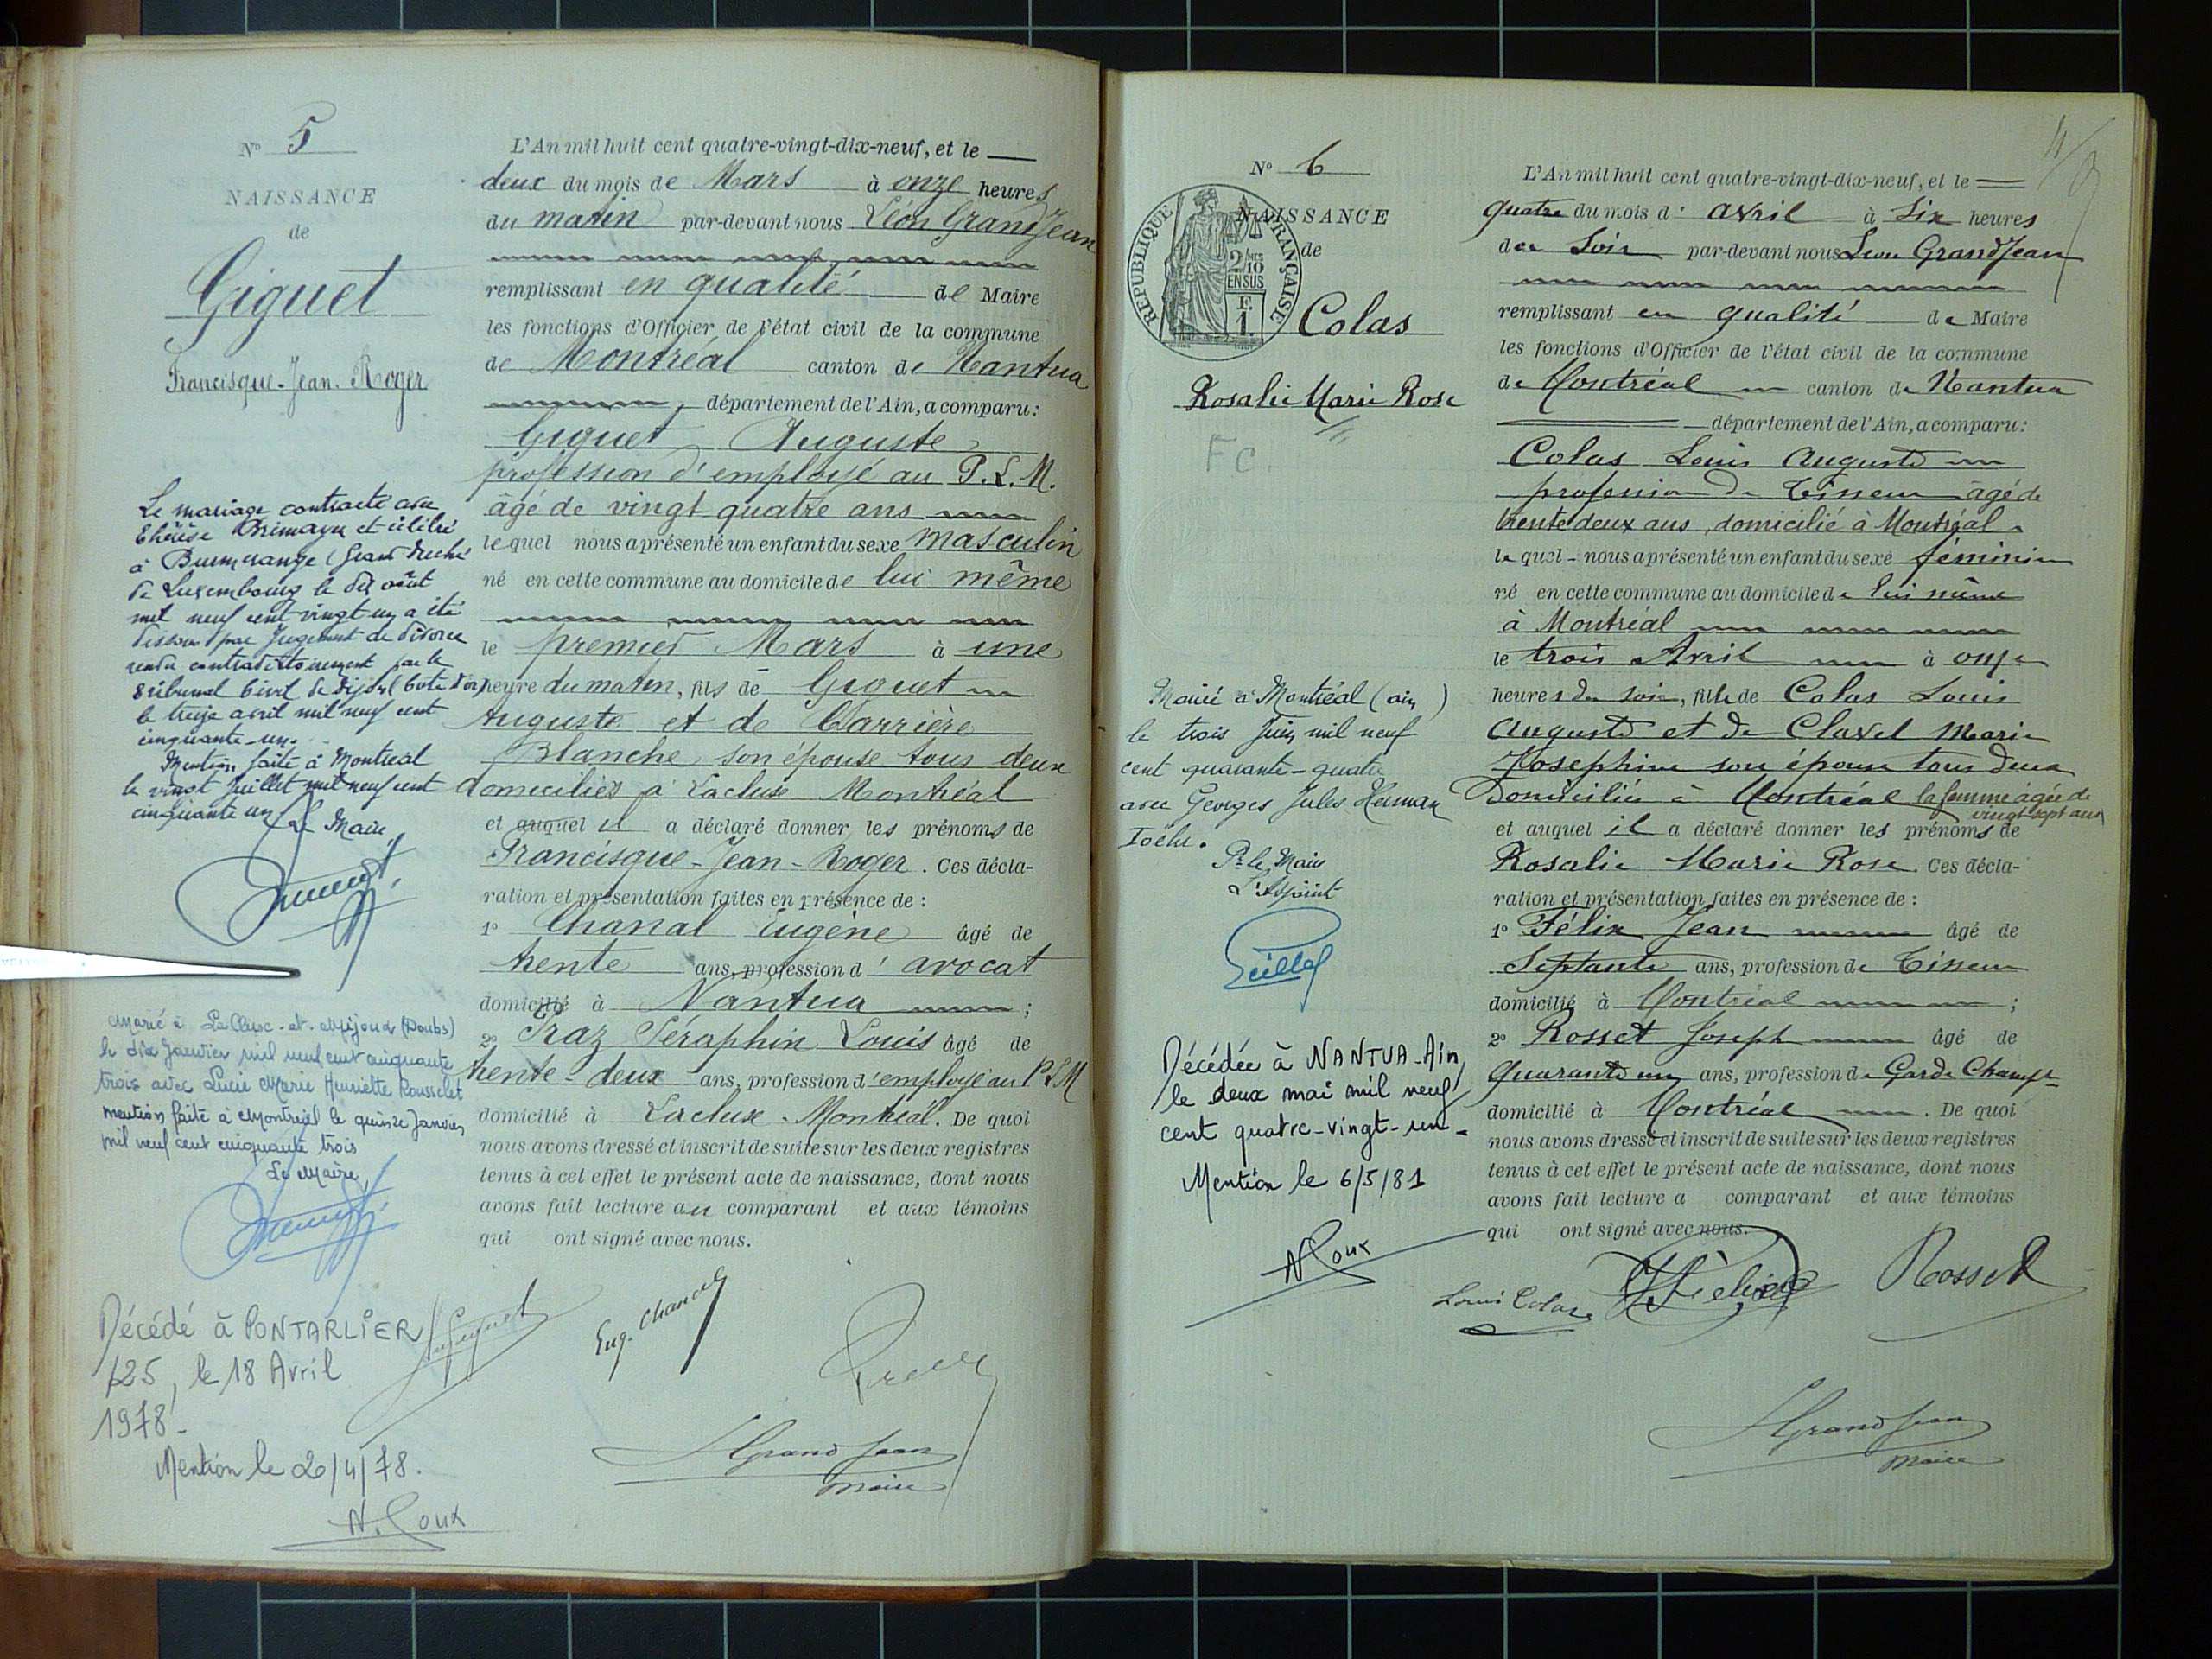 N° 5
NAISSANCE
de
Giguet
Francisque-Jean-Roger
Le mariage contracté avec
Thérèse et célébré
à Burmerange (Grand Duché
de Luxembourg le dix août
mil neuf cent vingt un a été
dissous par Jugement de divorce
rendu contradictoirement par le
Tribunal Civil de Dijon (Côte d'or)
le treize avril mil neuf cent
cinquante-un.
Mention faite à Montréal
le vingt Juillet mil neuf cent
cinquante un Le Maire,
Marié à La Cluse-et-Mijoux (Doubs)
le dix Janvier mil neuf cent cinquante
trois avec Lucie Marie Henriette Rousselet
mention faite à Montréal le quinze Janvier
mil neuf cent cinquante trois
Le Maire,
Décédé à PONTARLIER
/25, le 18 Avril
1978.
Mention le 20/4/78.
N. Roux
L'An mil huit cent quatre-vingt-dix-neuf, et le
deux du mois de Mars à onze heures
du matin par-devant nous Léon GrandJean
remplissant en qualité de Maire
les fonctions d'Officier de l'état civil de la commune
de Montréal canton de Nantua
département de l'Ain, a comparu:
Giguet Auguste
profession d'employé au P.L.M.
âgé de vingt quatre ans
lequel nous a présenté un enfant du sexe masculin
né en cette commune au domicile de lui même
le premier Mars à une
heure du matin, fils de Giguet
Auguste et de Carrière
Blanche son épouse tous deux
domiciliés à Lacluse Montréal
et auquel il a déclaré donner les prénoms de
Francisque-Jean-Roger. Ces décla-
ration et présentation faites en présence de :
1° Chanal Eugène âgé de
trente ans, profession d'avocat
domicilié à Nantua ;
2° Traz Séraphin Louis âgé de
trente-deux ans, profession d'employé au PLM
domicilié à Lacluse-Montréal. De quoi
nous avons dressé et inscrit de suite sur les deux registres
tenus à cet effet le présent acte de naissance, dont nous
avons fait lecture au comparant et aux témoins
qui ont signé avec nous.
Giguet
Eug. Chanal
LGrandJean
maire
N° 6
NAISSANCE
de
REPUBLIQUE FRANÇAISE
2/10
EN SUS
F
1.
Colas
Rosalie Marie Rose
Fc.
Mariée à Montréal (ain)
le trois Juin mil neuf
cent quarante-quatre
avec Georges Jules Herman
Pr le Maire
L'Adjoint
Décédée à NANTUA-Ain,
le deux mai mil neuf
cent quatre-vingt-un-
Mention le 6/5/81
N Roux
L'An mil huit cent quatre-vingt-dix-neuf, et le
quatre du mois d' avril à six heures
du soir par-devant nous Léon GrandJean
remplissant en qualité de Maire
les fonctions d'Officier de l'état civil de la commune
de Montréal canton de Nantua
département de l'Ain, a comparu:
Colas Louis Auguste
profession de Tisseur âgé de
trente deux ans, domicilié à Montréal
le quel nous a présenté un enfant du sexe féminin
né en cette commune au domicile de lui même
à Montréal
le trois Avril à onze
heures du soir, fille de Colas Louis
Auguste et de Clavel Marie
Josephine son épouse tous deux
domiciliés à Montréal la femme âgée de
vingt sept ans
et auquel il a déclaré donner les prénoms de
Rosalie Marie Rose Ces décla-
ration et présentation faites en présence de :
1° Félix Jean âgé de
Septante ans, profession de Tisseur
domicilié à Montréal ;
2° Rosset Joseph âgé de
quarante un ans, profession de Garde Champ-
domicilié à Montréal. De quoi
nous avons dressé et inscrit de suite sur les deux registres
tenus à cet effet le présent acte de naissance, dont nous
avons fait lecture a comparant et aux témoins
qui ont signé avec nous.
Louis Colas
Félix
Rosset
LGrandJean
maire